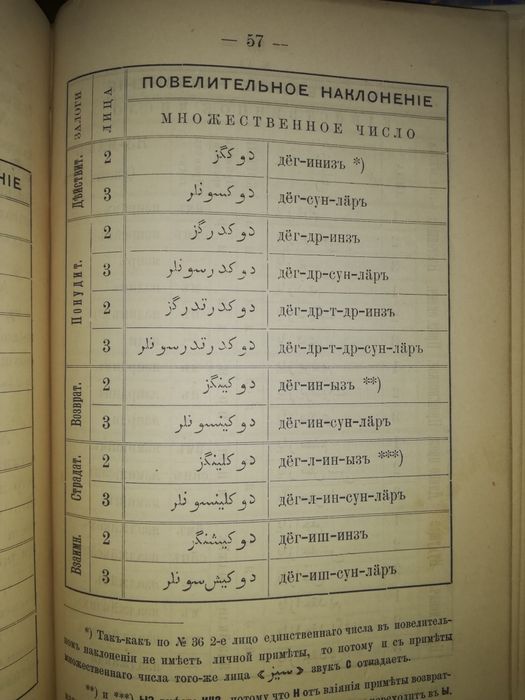 — 57 —
ЗАЛОГИ ЛИЦА ПОВЕЛИТЕЛЬНОЕ НАКЛОНЕНІЕ
МНОЖЕСТВЕННОЕ ЧИСЛО
Дѣйствит. 2 دوككز дёг-инизъ *)
3 دوكسونلر дёг-сун-лäръ
Понудит. 2 دوكدرگز дёг-др-инзъ
3 دوكدرسونلر дёг-др-сун-лäръ
2 دوكدرتدرگز дёг-др-т-др-инзъ
3 دوكدرتدرسونلر дёг-др-т-др-сун-лäръ
Возврат. 2 دوكينگز дёг-ин-ызъ **)
3 دوكينسونلر дёг-ин-сун-лäръ
Страдат. 2 دوكلينگز дёг-л-ин-ызъ ***)
3 دوكلينسونلر дёг-л-ин-сун-лäръ
Взаимн. 2 دوكيشنگز дёг-иш-инзъ
3 دوكيش سونلر дёг-иш-сун-лäръ
*) Такъ-какъ по № 36 2-е лицо единственнаго числа въ повелитель-
номъ наклоненіи не имѣетъ личной примѣты, то потому и съ примѣты
множественнаго числа того-же лица «سيز» звукъ С отпадаетъ.
**) и ***) потому что Н отъ вліянія примѣты возврат-
переходитъ ы.
НІЕ